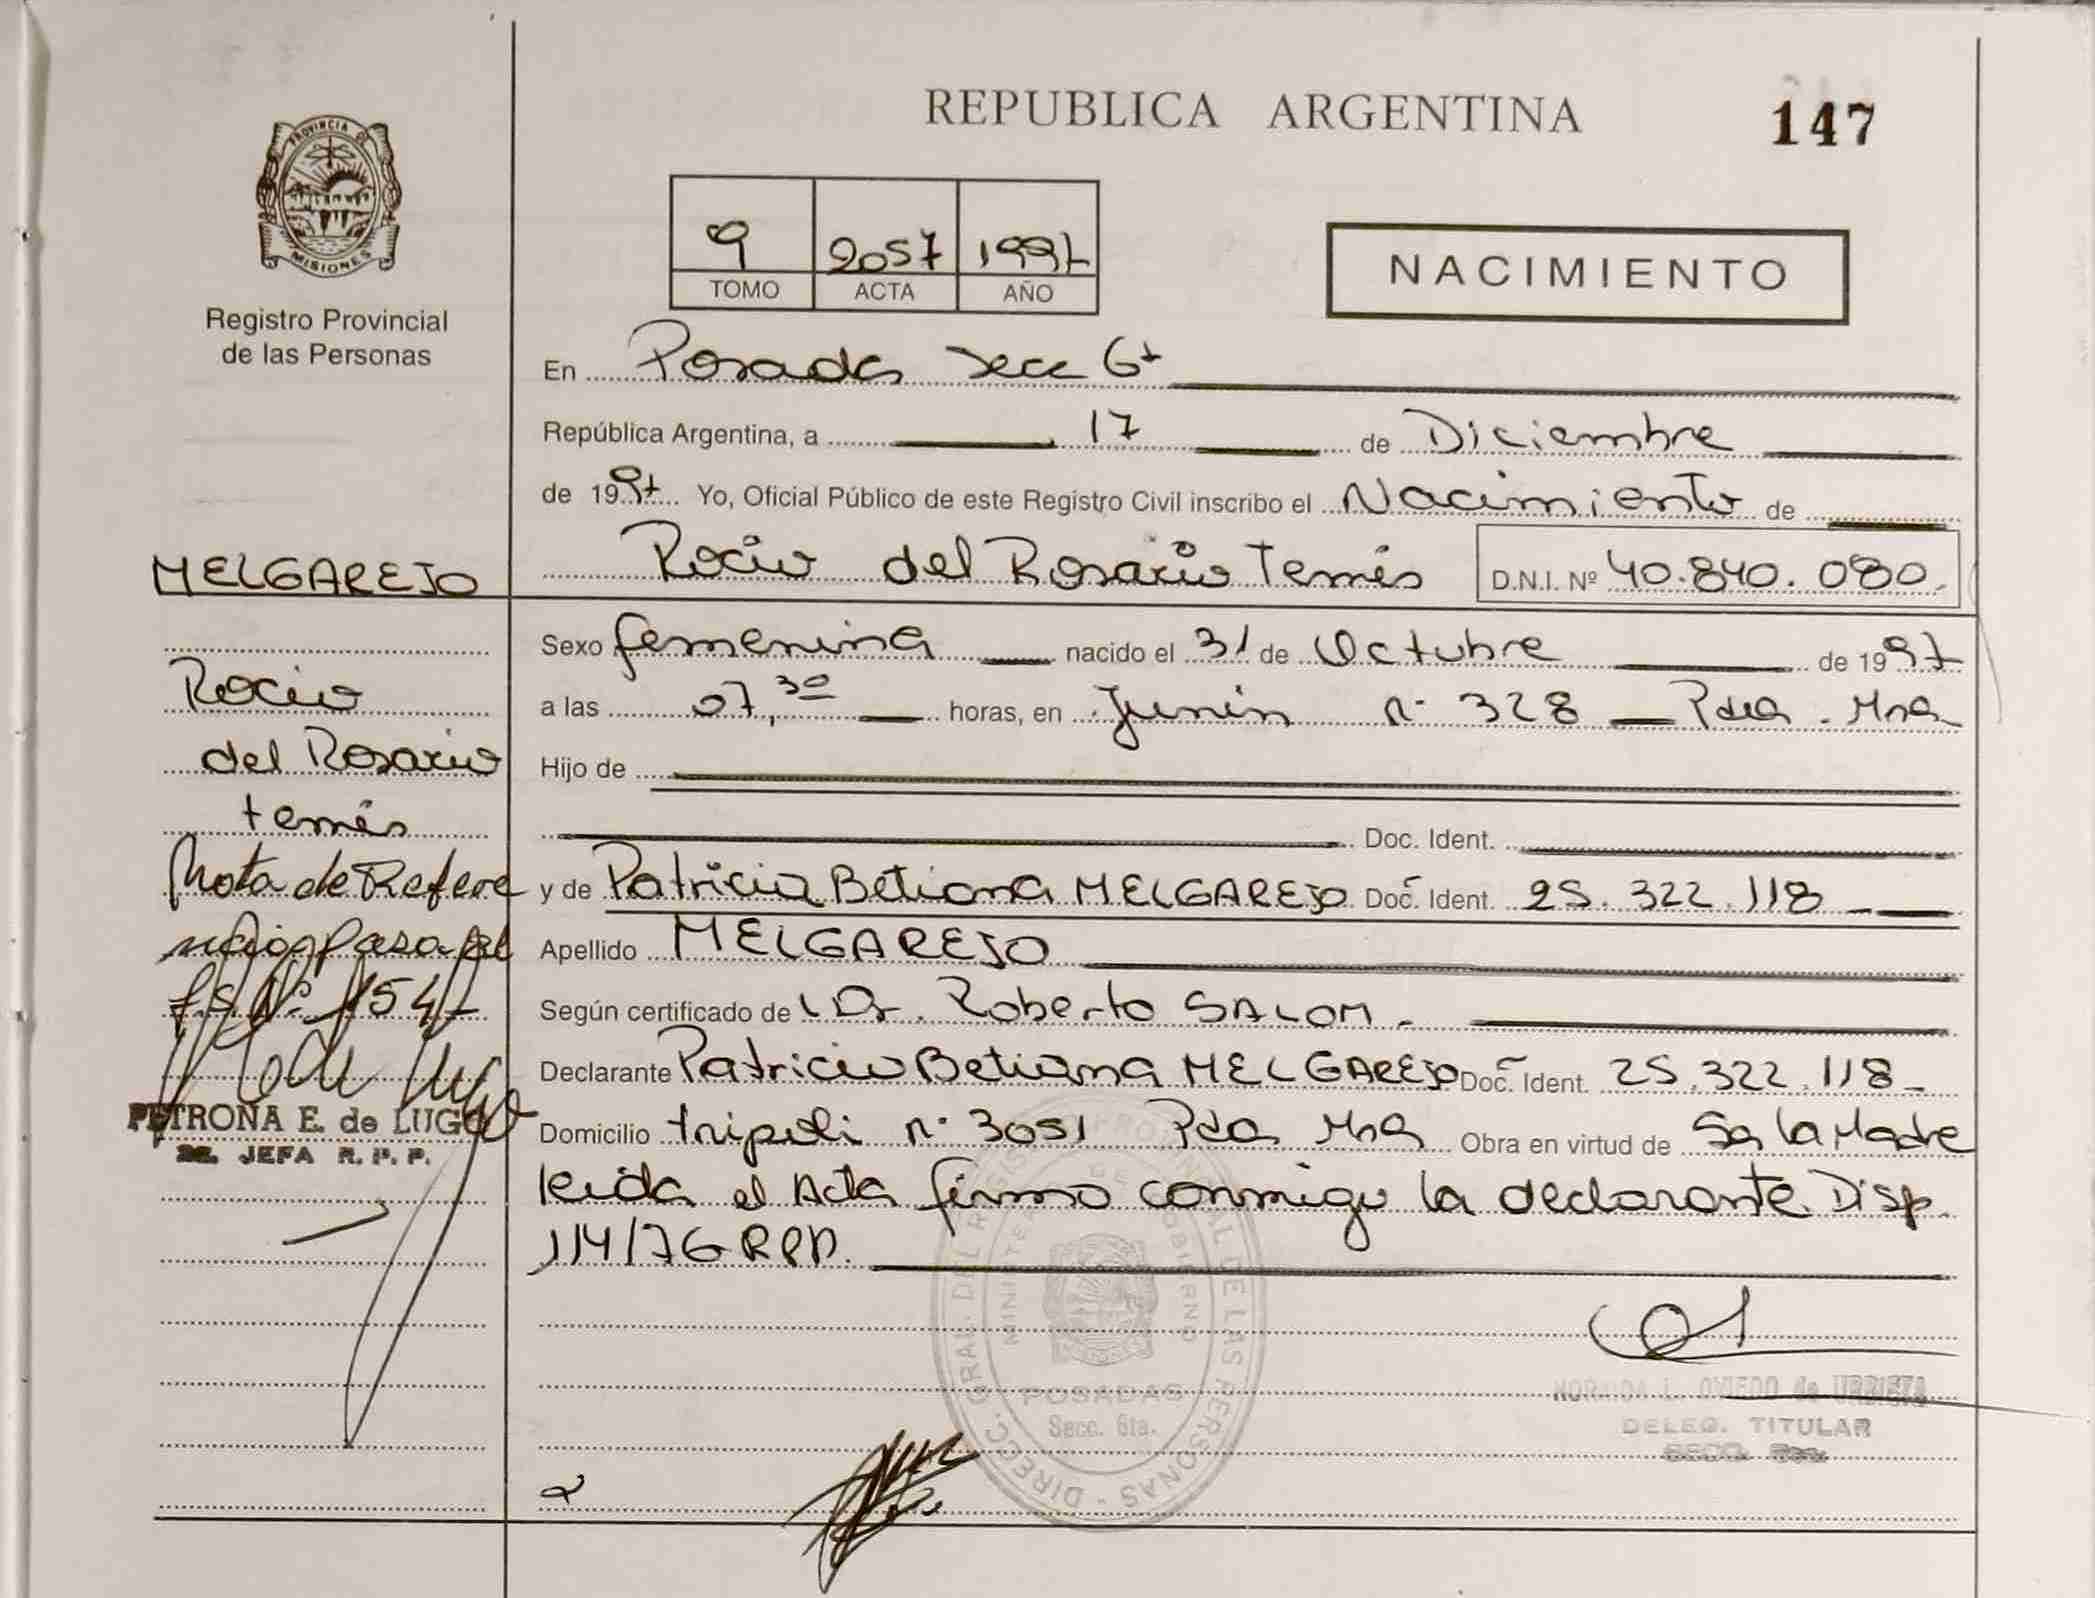 REPUBLICA ARGENTINA
147
PROVINCIA DE
MISIONES
Registro Provincial
de las Personas
9 2057 1997
TOMO ACTA AÑO
NACIMIENTO
En Posadas Secc 6ta
República Argentina, a 17 de Diciembre
de 1997 Yo, Oficial Público de este Registro Civil inscribo el Nacimiento de
Rocio del Rosario Temis D.N.I. Nº 40.840.080.
Sexo femenina nacido el 31 de Octubre de 1997
a las 07,30 horas, en Junin nº 328 Pdas. Mnes
Hijo de
Doc. Ident.
y de Patricia Betiana MELGAREJO Doc. Ident. 25.322.118
Apellido MELGAREJO
Según certificado de Dr. Roberto SALOM.
Declarante Patricia Betiana MELGAREJO Doc. Ident. 25.322.118
Domicilio tripoli nº 3051 Pdas Mnes Obra en virtud de Ser la Madre
leida el Acta firma conmigo la declarante. Disp.
114/76 RPP.
MELGAREJO
Rocio
del Rosario
temis
Nota de Refere
ncia pasa al
f.s. Nº 154
PETRONA E. de LUGO
JEFA R. P. P.
DIRECC. GRAL. DEL REGISTRO PROVINCIAL DE LAS PERSONAS
MINISTERIO DE GOBIERNO
POSADAS
Secc. 6ta.
L. OVIEDO de URBIETA
DELEG. TITULAR
SECC. 6ta.